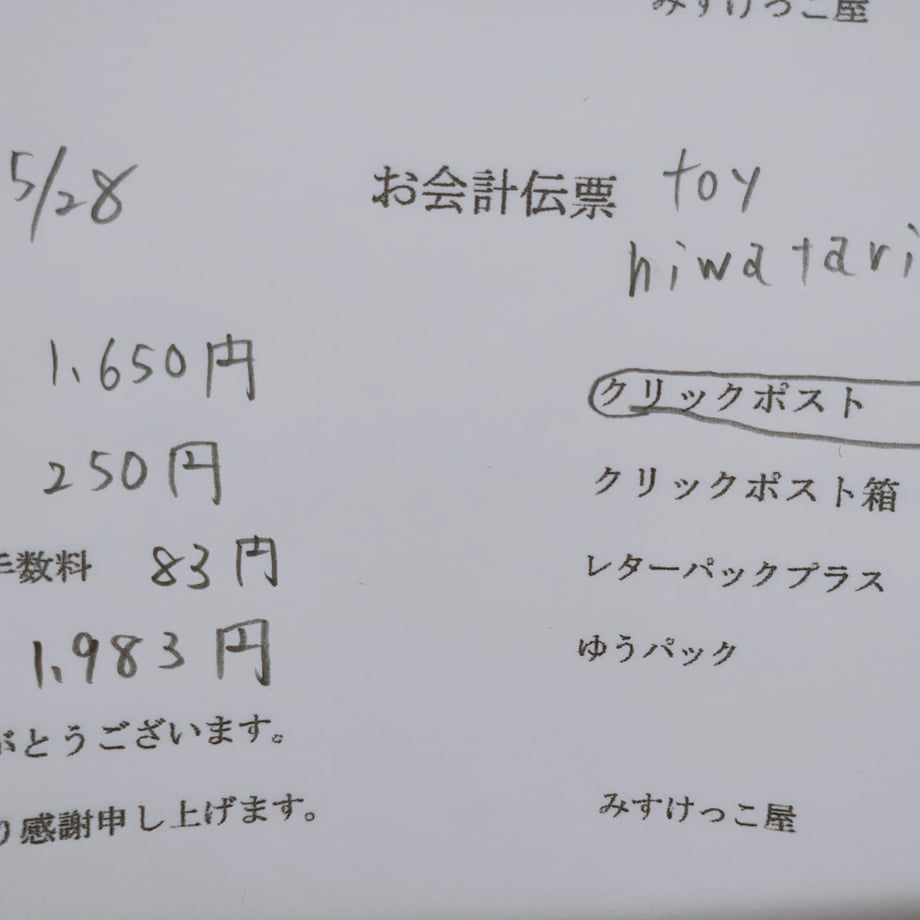 みすけっこ屋
5/28 お会計伝票 toy
hiwatari
1,650円
クリックポスト
250円
クリックポスト箱
手数料 83円
レターパックプラス
1,983円
ゆうパック
がとうございます。
り感謝申し上げます。
みすけっこ屋